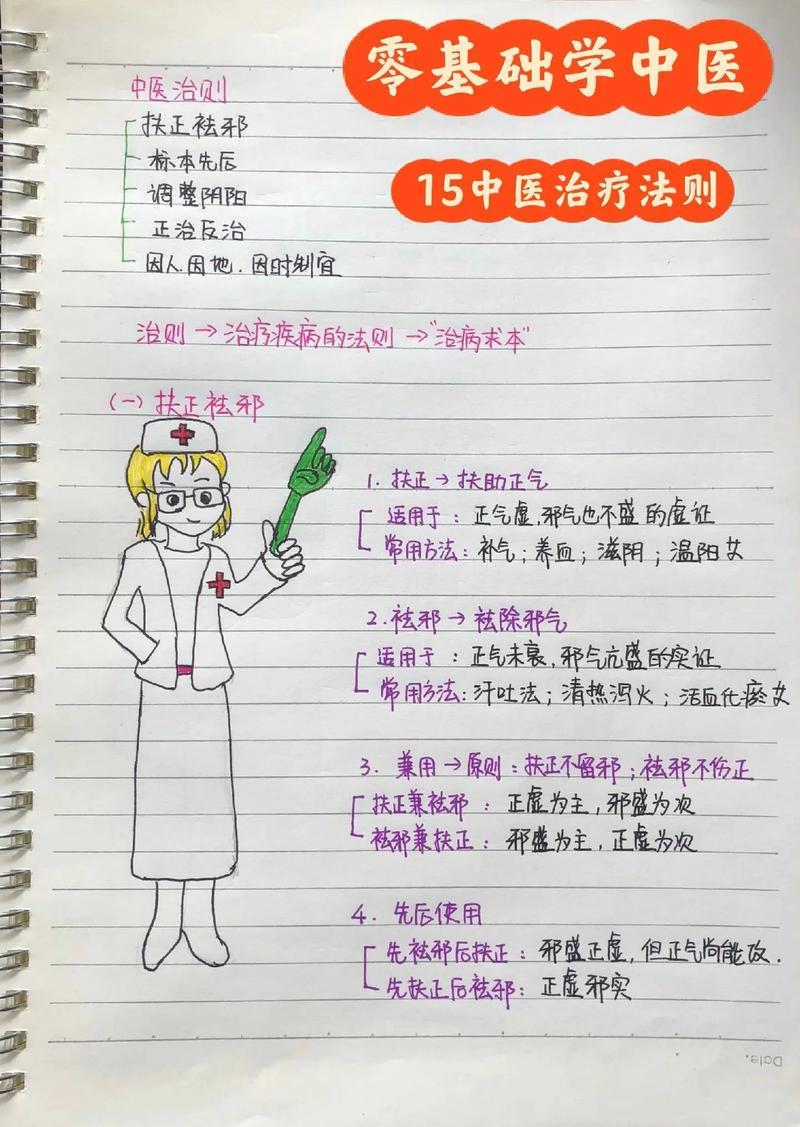 零基础学中医
15中医治疗法则
中医治则
扶正祛邪
标本先后
调整阴阳
正治反治
因人.因地.因时制宜
治则→治疗疾病的法则→"治病求本"
(一)扶正祛邪
1. 扶正→扶助正气
适用于：正气虚,邪气也不盛的虚证
常用方法：补气；养血；滋阴；温阳
2.祛邪→祛除邪气
适用于：正气未衰,邪气亢盛的实证
常用方法:汗吐法；清热泻火；活血化瘀
3. 兼用→原则：扶正不留邪；祛邪不伤正
扶正兼祛邪：正虚为主,邪盛为次
祛邪兼扶正：邪盛为主,正虚为次
4. 先后使用
先祛邪后扶正：邪盛正虚,但正气尚能攻.
先扶正后祛邪：正虚邪实
Date.